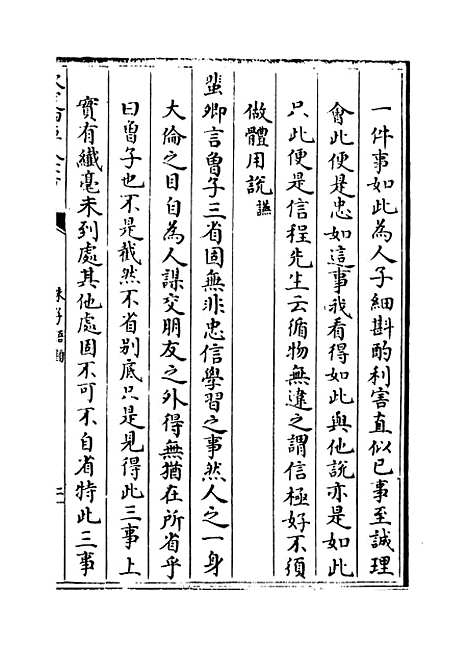 一件事如此為人子細斟酌利害直似己事至誠理
會此便是忠如這事我看得如此與他說亦是如此
只此便是信程先生云循物無違之謂信極好不須
做體用說謡
蜚卿言曾子三省固無非忠信學習之事然人之一身
大倫之目自為人謀交朋友之外得無猶在所省乎
曰曾子也不是截然不省別底只是見得此三事上
實有纖毫未到處其他處固不可不自省特此三事
朱子語類